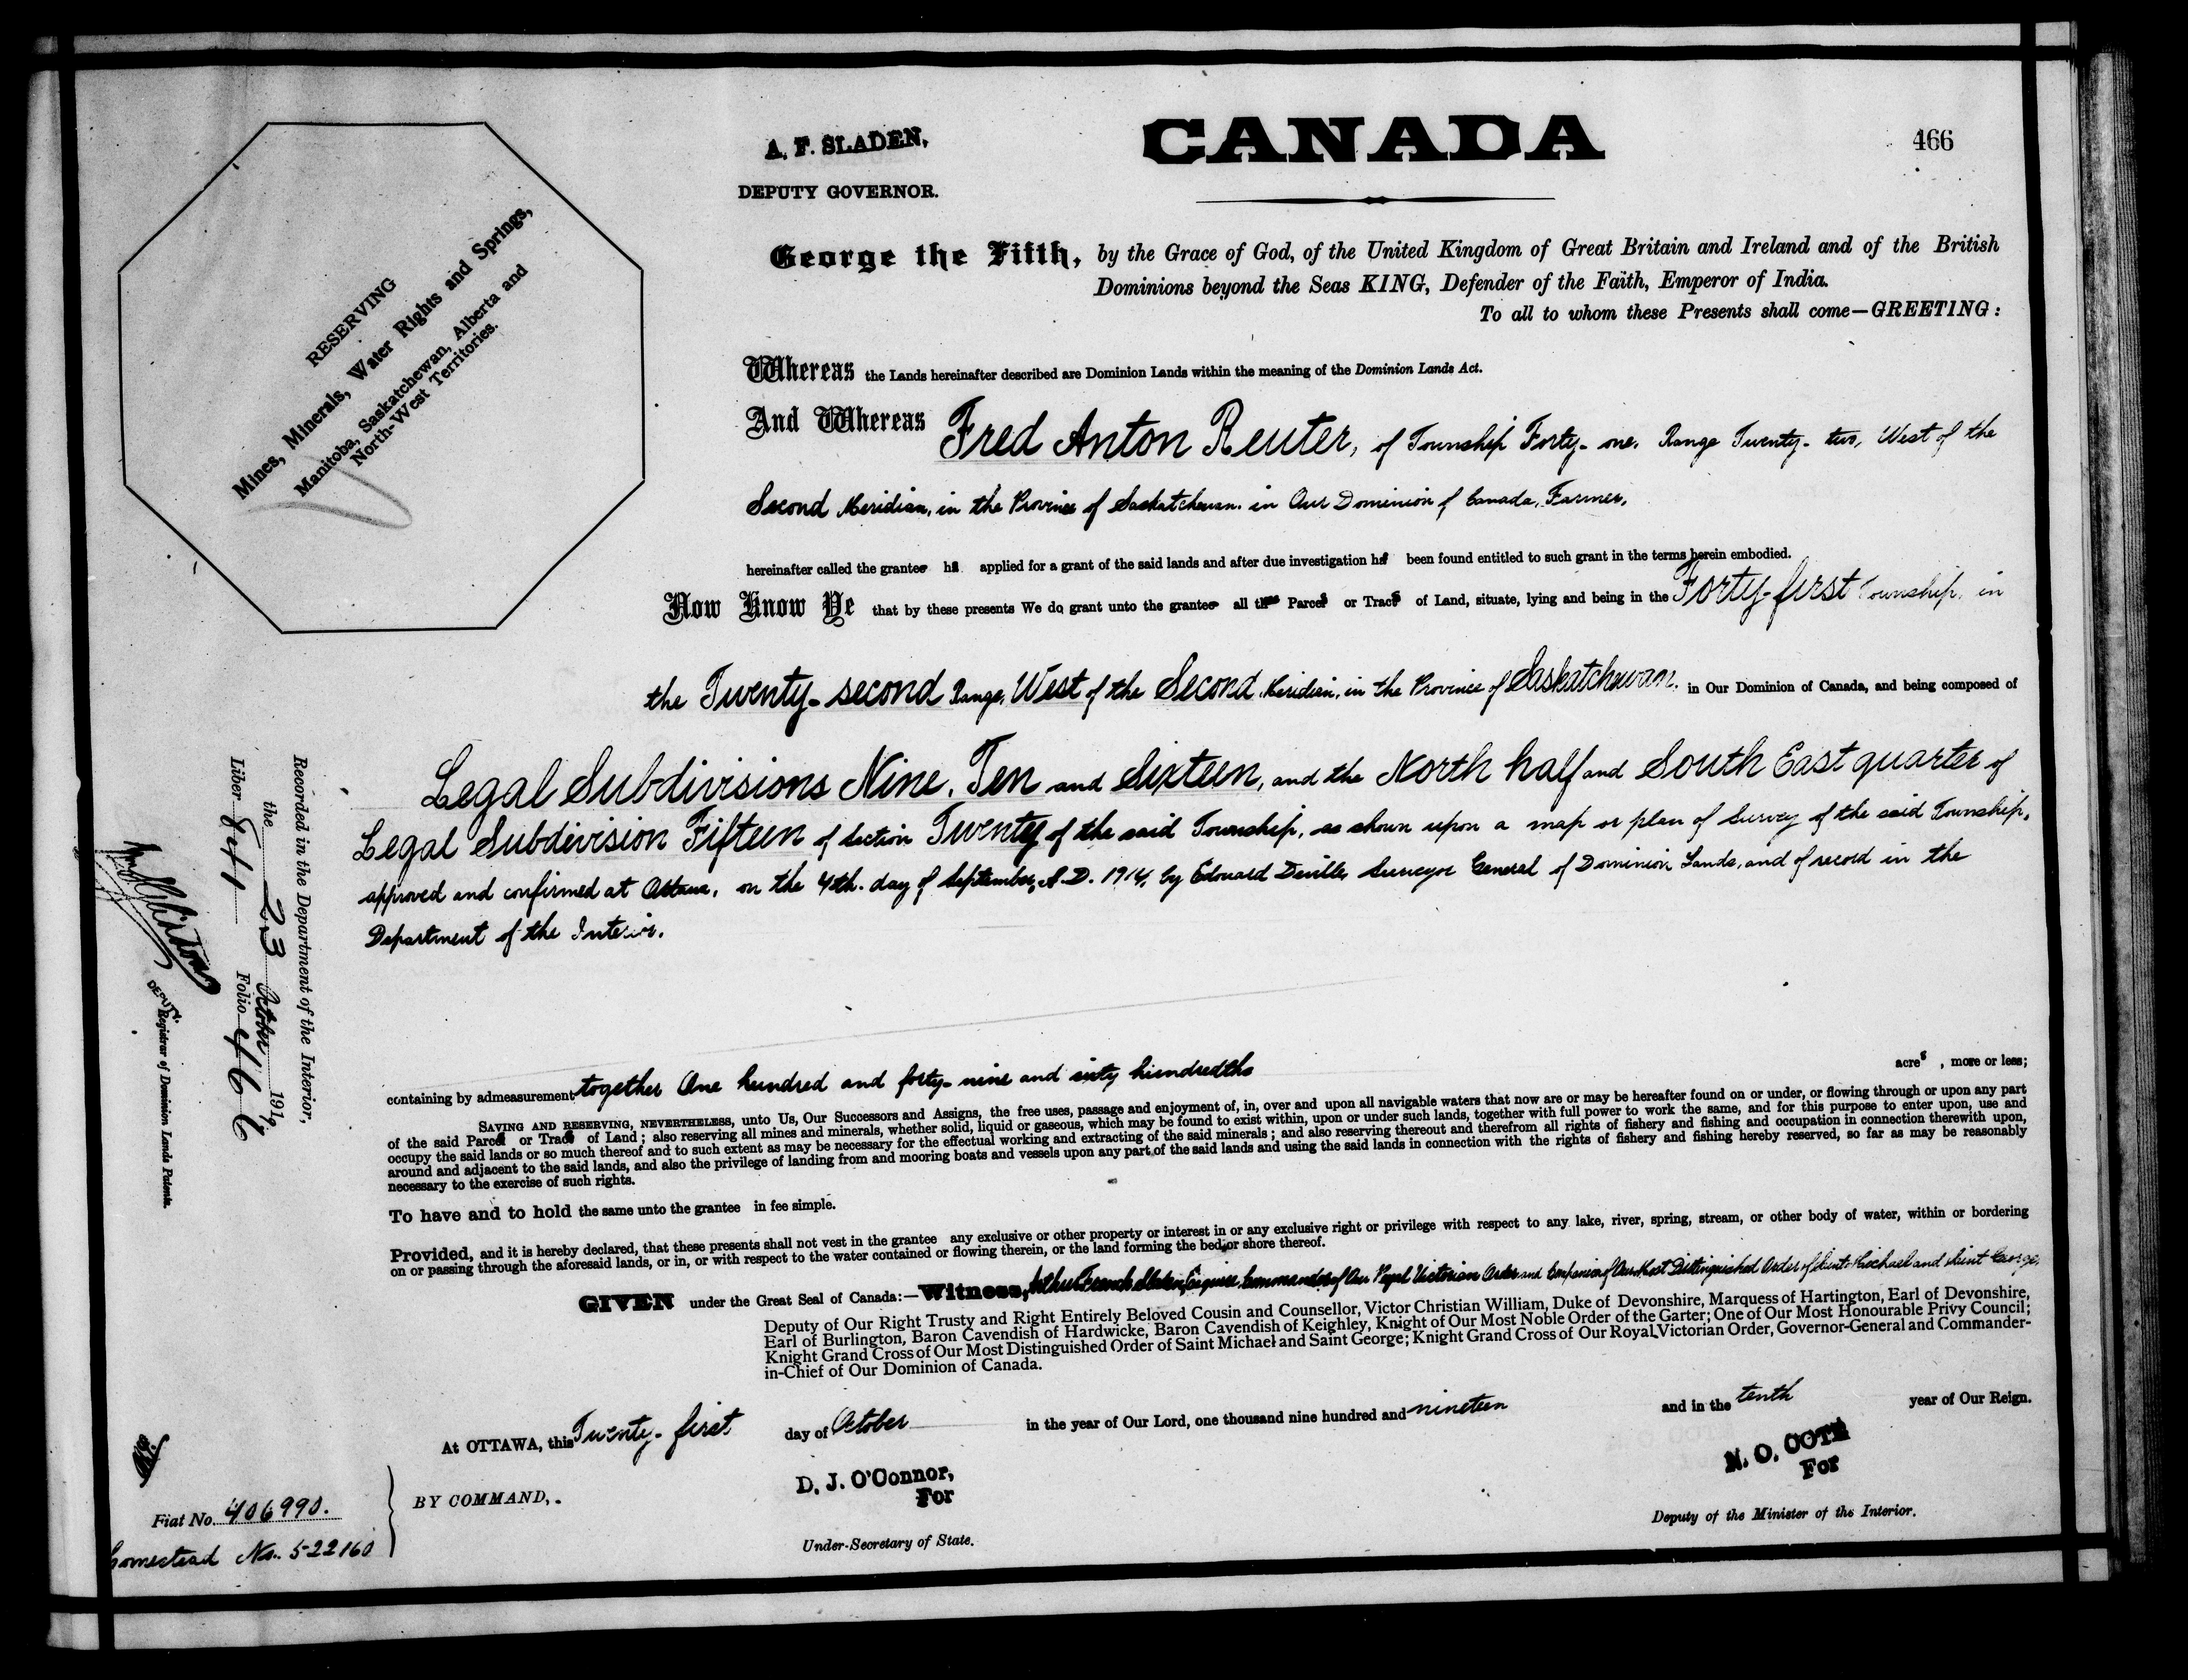 466
A. F. SLADEN,
DEPUTY GOVERNOR.
CANADA
RESERVING
Mines, Minerals, Water Rights and Springs,
Manitoba, Saskatchewan, Alberta and
North-West Territories.
George the Fifth, by the Grace of God, of the United Kingdom of Great Britain and Ireland and of the British
Dominions beyond the Seas KING, Defender of the Faith, Emperor of India.
To all to whom these Presents shall come—GREETING:
Whereas the Lands hereinafter described are Dominion Lands within the meaning of the Dominion Lands Act.
And Whereas Fred Anton Reuter, of Township Forty-one, Range Twenty-two, West of the
Second Meridian, in the Province of Saskatchewan, in Our Dominion of Canada, Farmer,
hereinafter called the grantee has applied for a grant of the said lands and after due investigation has been found entitled to such grant in the terms herein embodied.
Now Know Ye that by these presents We do grant unto the grantee all those Parcels or Tracts of Land, situate, lying and being in the Forty-first Township, in
the Twenty-second Range, West of the Second Meridian, in the Province of Saskatchewan, in Our Dominion of Canada, and being composed of
Legal Subdivisions Nine, Ten and Sixteen, and the North half and South East quarter of
Legal Subdivision Fifteen of Section Twenty of the said Township, as shown upon a map or plan of Survey of the said Township,
approved and confirmed at Ottawa, on the 4th. day of September, A.D. 1914, by Edouard Deville, Surveyor General of Dominion Lands, and of record in the
Department of the Interior.
containing by admeasurement together One hundred and forty-nine and sixty hundredths acres, more or less;
SAVING AND RESERVING, NEVERTHELESS, unto Us, Our Successors and Assigns, the free uses, passage and enjoyment of, in, over and upon all navigable waters that now are or may be hereafter found on or under, or flowing through or upon any part
of the said Parcels or Tracts of Land; also reserving all mines and minerals, whether solid, liquid or gaseous, which may be found to exist within, upon or under such lands, together with full power to work the same, and for this purpose to enter upon, use and
occupy the said lands or so much thereof and to such extent as may be necessary for the effectual working and extracting of the said minerals; and also reserving thereout and therefrom all rights of fishery and fishing and occupation in connection therewith upon,
around and adjacent to the said lands, and also the privilege of landing from and mooring boats and vessels upon any part of the said lands and using the said lands in connection with the rights of fishery and fishing hereby reserved, so far as may be reasonably
necessary to the exercise of such rights.
To have and to hold the same unto the grantee in fee simple.
Provided, and it is hereby declared, that these presents shall not vest in the grantee any exclusive or other property or interest in or any exclusive right or privilege with respect to any lake, river, spring, stream, or other body of water, within or bordering
on or passing through the aforesaid lands, or in, or with respect to the water contained or flowing therein, or the land forming the bed or shore thereof.
GIVEN under the Great Seal of Canada:—Witness, Arthur French Sladen, Esquire, Commander of Our Royal Victorian Order and Companion of Our Most Distinguished Order of Saint Michael and Saint George,
Deputy of Our Right Trusty and Right Entirely Beloved Cousin and Counsellor, Victor Christian William, Duke of Devonshire, Marquess of Hartington, Earl of Devonshire,
Earl of Burlington, Baron Cavendish of Hardwicke, Baron Cavendish of Keighley, Knight of Our Most Noble Order of the Garter; One of Our Most Honourable Privy Council;
Knight Grand Cross of Our Most Distinguished Order of Saint Michael and Saint George; Knight Grand Cross of Our Royal Victorian Order, Governor-General and Commander-
in-Chief of Our Dominion of Canada.
At OTTAWA, this Twenty-first day of October in the year of Our Lord, one thousand nine hundred and nineteen and in the tenth year of Our Reign.
BY COMMAND,
D. J. O'Connor,
For
Under-Secretary of State.
N. O. COTE
For
Deputy of the Minister of the Interior.
Fiat No. 406990.
Homestead No. 522160
Recorded in the Department of the Interior,
the 23 October 1919
Liber 841 Folio 466
DEPUTY
Registrar of Dominion Lands Patents.